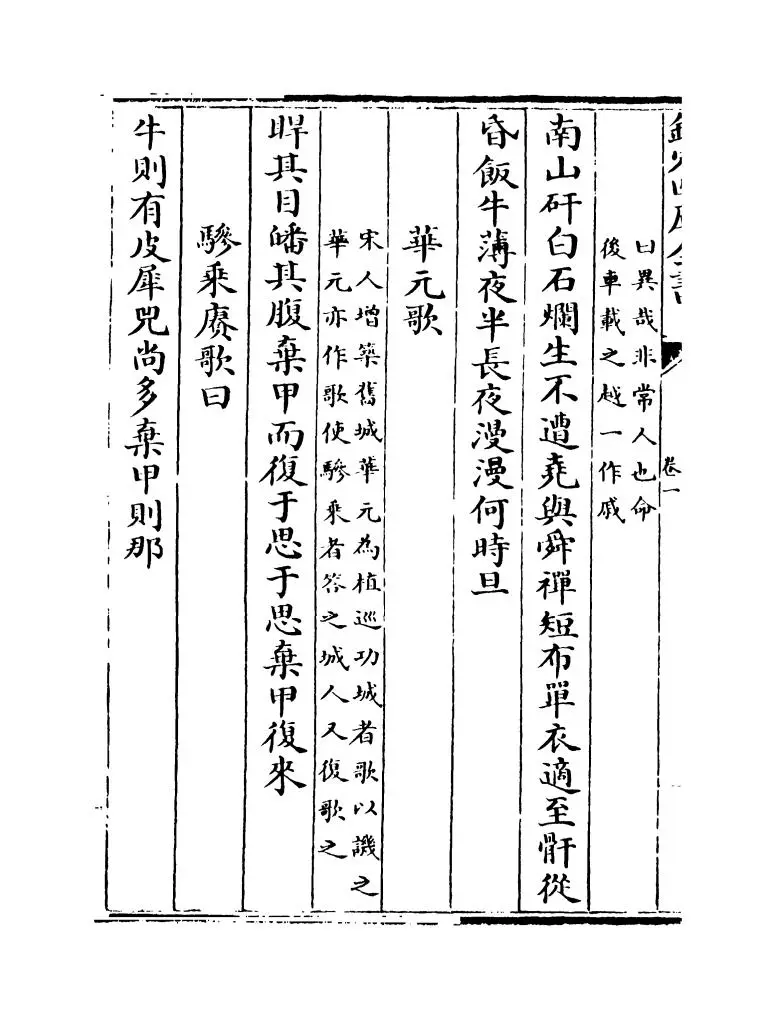 欽定四庫全書
卷一
曰異哉非常人也命
後車載之越一作戚
南山矸白石爛生不遭堯與舜禪短布單衣適至骭從
昏飯牛薄夜半長夜漫漫何時旦
華元歌
宋人増築舊城華元為植巡功城者歌以譏之
華元亦作歌使驂乘者答之城人又復歌之
睅其目皤其腹棄甲而復于思于思棄甲復來
驂乘賡歌曰
牛則有皮犀兕尚多棄甲則那